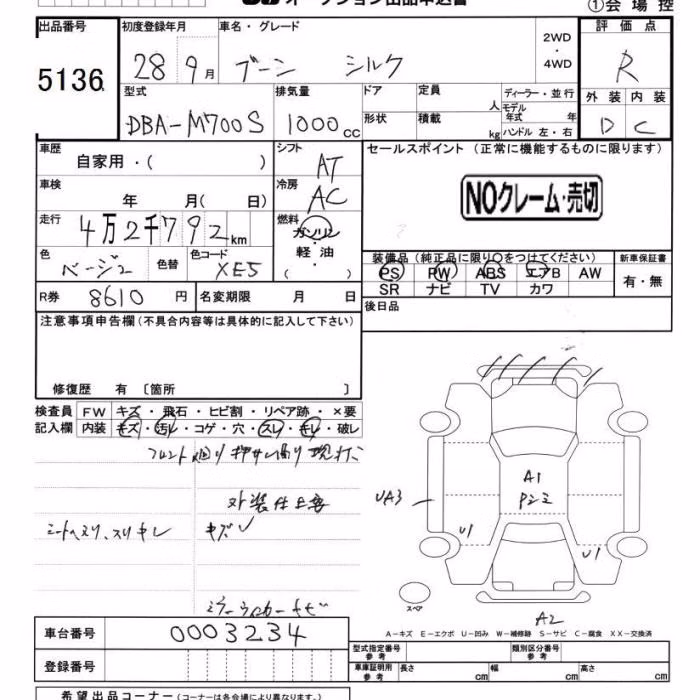 オークション出品申込書
①会場控
出品番号 初度登録年月 車名・グレード 2WD・4WD 評価点
5136 28 9月 ブーン シルク R
型式 排気量 ドア 定員 人 ディーラー・並行 外装 内装
DBA-M700S 1000cc 形状 積載 kg モデル年式 年 ハンドル 左・右 D C
車歴 自家用・( ) シフト AT セールスポイント(正常に機能するものに限ります)
車検 年 月( 日) 冷房 AC NOクレーム・売切
走行 4万2千792km 燃料 ガソリン・軽油・( )
色 ベージュ 色替 色コード XE5
装備品(純正品に限り○をつけてください) 新車保証書
PS PW ABS エアB AW 有・無
SR ナビ TV カワ
R券 8610円 名変期限 月 日 後日品
注意事項申告欄(不具合内容等は具体的に記入して下さい)
修復歴 有 〔箇所 〕
検査員記入欄 FW キズ・飛石・ヒビ割・リペア跡・×要
内装 キズ・汚レ・コゲ・穴・スレ・キレ・破レ
外装仕上要
キズ
A1
UA3
U1
U1
スペア
A2
A-キズ E-エクボ U-凹み W-補修跡 S-サビ C-腐食 XX-交換済
車台番号 0003234
型式指定番号 参考 類別区分番号 参考
登録番号 車庫証明用 参考 長さ cm 幅 cm 高さ cm
希望出品コーナー(コーナーは各会場により異なります)